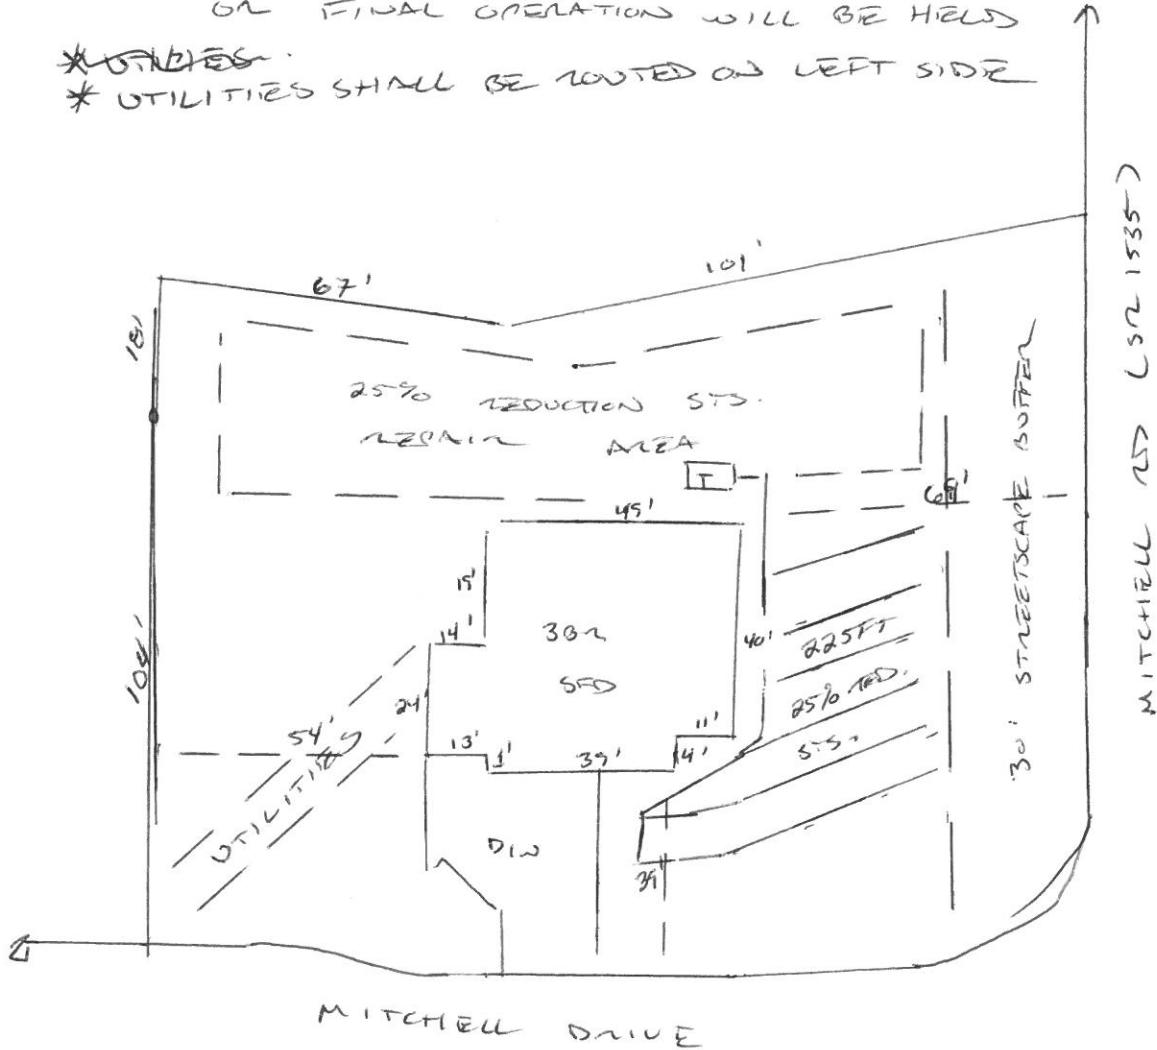 OR FINAL OPERATION WILL BE HELD
* UTILITIES SHALL BE ROUTED ON LEFT SIDE
67'
101'
18'
25% REDUCTION STS.
REPAIR AREA
T
45'
15'
14'
3BR
SFD
40'
225FT
25% RED.
STS.
24'
11'
4'
13'
1'
39'
54'
UTILITIES
D/W
39'
108'
30' STREETSCAPE BUFFER
MITCHELL RD (SR 1535)
MITCHELL DRIVE